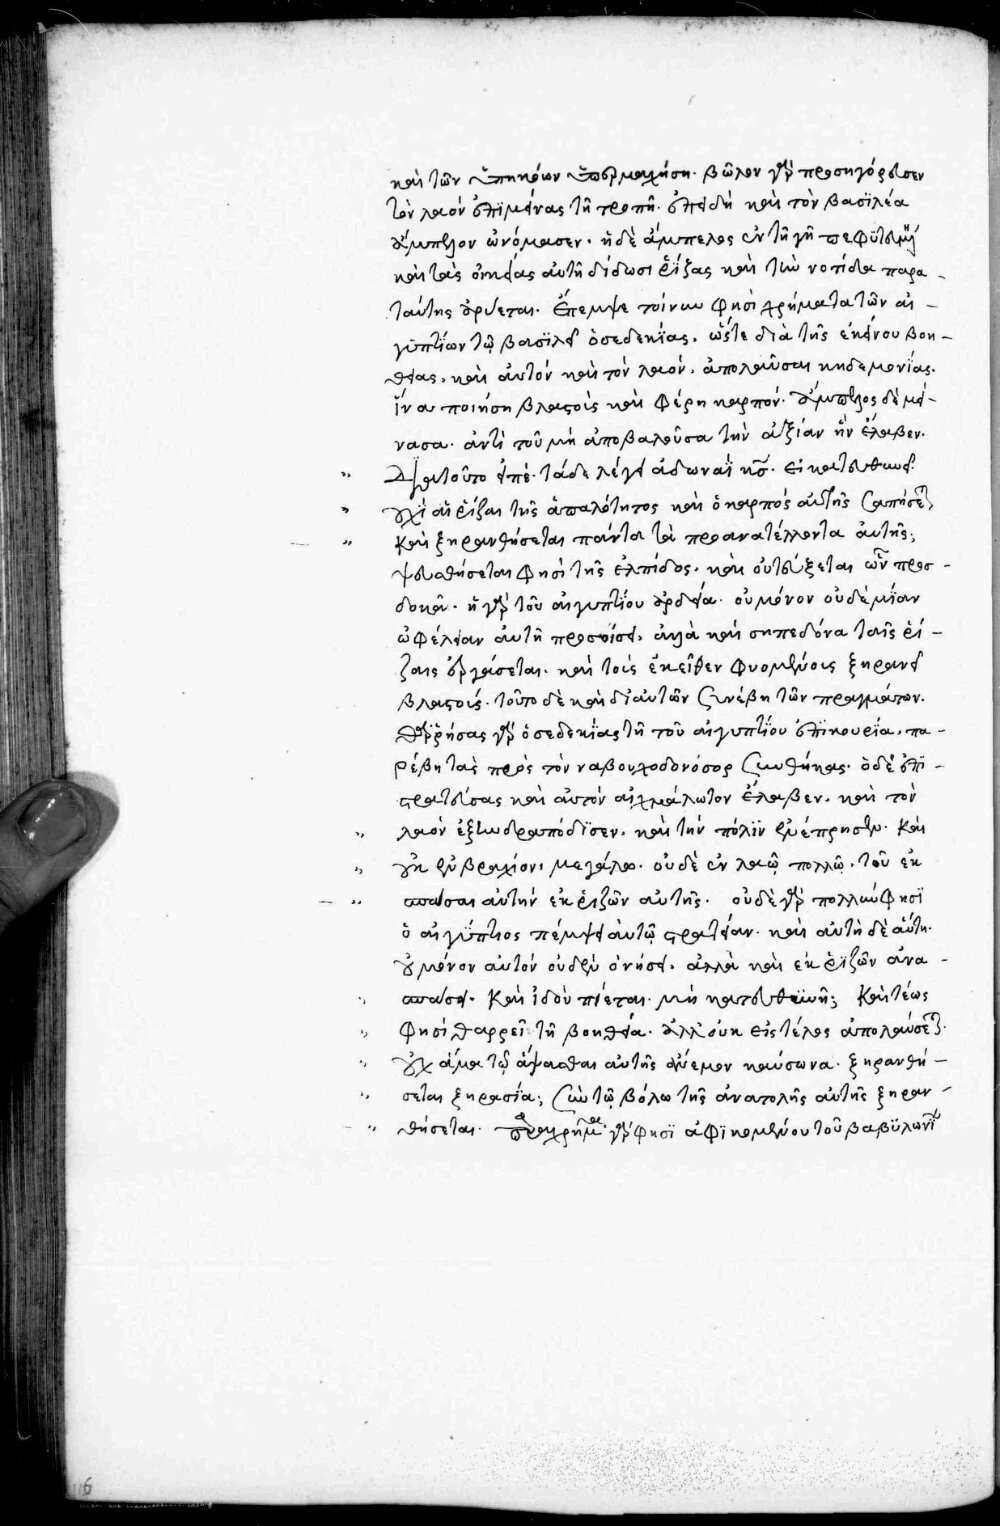 καὶ τῶν ὑπηκόων ὑπερμαχήση. βῶλον γὰρ προσηγόρευσεν
τὸν λαὸν ἐπιμείνας τῆ τροπῆ. ἐπειδὴ καὶ τὸν βασιλέα
ἄμπελον ὠνόμασεν. ἡ δὲ ἄμπελος ἐν τῆ γῆ πεφύτευται
καὶ τὰς οἰκείας αὐτῆ δίδωσι ῥίζας καὶ τὴν νοτίδα παρα-
ταύτης ἀρύεται. ἔπεμψε τοίνυν φησὶ χρήματα τῶν αἰ-
γυπτίων τῷ βασιλεῖ ὁ σεδεκίας. ὥστε διὰ τῆς ἐκείνου βοη-
θείας. καὶ αὐτὸν καὶ τὸν λαὸν. ἀπολαῦσαι κηδεμονίας.
ἵνα ποιήση βλαστοὺς καὶ φέρη καρπόν. ἄμπελος δὲ μεί-
νασα. ἀντὶ τοῦ μὴ ἀποβαλοῦσα τὴν ἀξίαν ἣν ἔλαβεν.
Διατοῦτο εἰπέ. τάδε λέγει ἀδωναῒ κς. εἰ κατευθυνεῖ.
οὐχὶ αἱ ῥίζαι τῆς ἁπαλότητος καὶ ὁ καρπὸς αὐτῆς σαπήσεται
καὶ ξηρανθήσεται πάντα τὰ προανατέλλοντα αὐτῆς;
ψευσθήσεται φησὶ τῆς ἐλπίδος. καὶ οὐ τεύξεται ὧν προσ-
δοκᾶ. ἡ γὰρ τοῦ αἰγυπτίου ἀρδεία. οὐ μόνον οὐδὲ μίαν
ὠφέλειαν αὐτῆ προσοίσει. ἀλλὰ καὶ σηπεδόνα ταῖς ῥί-
ζαις ἐργάσεται. καὶ τοὺς ἐκεῖθεν φυομένους ξηρανεῖ
βλαστούς. τοῦτο δὲ καὶ δι' αὐτῶν συνέβη τῶν πραγμάτων.
θαρρήσας γὰρ ὁ σεδεκίας τῆ τοῦ αἰγυπτίου ἐπικουρία. πα-
ρέβη τὰς πρὸς τὸν ναβουχοδονόσορ συνθήκας. ὁ δὲ ἐπι-
στρατεύσας καὶ αὐτὸν αἰχμάλωτον ἔλαβεν. καὶ τὸν
λαὸν ἐξηνδραπόδισεν. καὶ τὴν πόλιν ἐνέπρησεν. καὶ
οὐκ ἐν βραχίονι μεγάλω. οὐδὲ ἐν λαῷ πολλῷ. τοῦ ἐκ
σπάσαι αὐτὴν ἐκ ῥιζῶν αὐτῆς. οὐδὲ γὰρ πολλὴν φησὶ
ὁ αἰγύπτιος πέμψει αὐτῷ στρατείαν. καὶ αὐτὴ δὲ αὕτη.
οὐ μόνον αὐτὸν οὐδὲν ὀνήσει. ἀλλὰ καὶ ἐκ ῥιζῶν ἀνα-
σπάσει. καὶ ἰδοὺ πιαίνεται. μὴ κατευθυνῆ; καὶ τέως
φησὶ θαρρεῖ τῆ βοηθεία. ἀλλ' οὐκ εἰς τέλος ἀπολαύσεται.
οὐχ ἅμα τῷ ἅψασθαι αὐτῆς ἄνεμον καύσωνα. ξηρανθή-
σεται ξηρασία; σὺν τῷ βόλω τῆς ἀνατολῆς αὐτῆς ξηραν-
θήσεται. παραχρῆμα γὰρ φησὶ ἀφικομένου τοῦ βαβυλωνίου